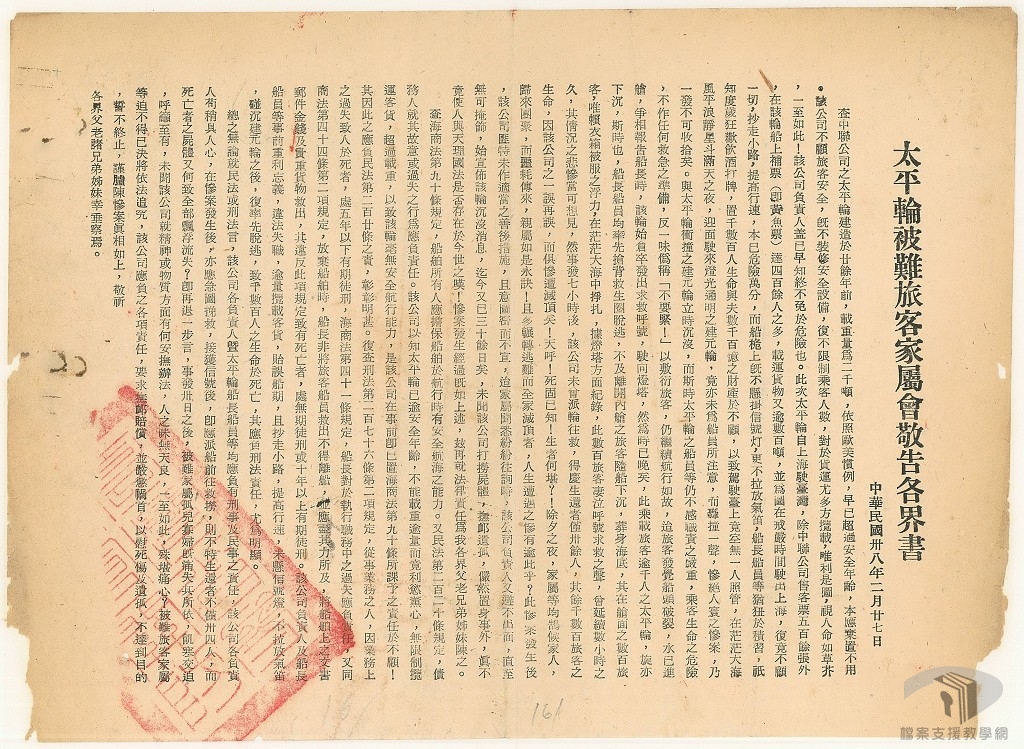 太平輪被難旅客家屬會敬告各界書
中華民國卅八年二月廿七日
查中聯公司之太平輪建造於廿餘年前，載重量為二千噸，依照歐美慣例，早已超過安全年齡，本應棄置不用
。該公司不顧旅客安全，既不裝修安全設備，復不限制乘客人數，對於貨運尤多方攬載，唯利是圖，視人命如草芥
，一至如此！該公司負責人蓋已早知終不免於危險也。此次太平輪自上海駛臺灣，除中聯公司售客票五百餘張外
，在該輪船上補票（即黃魚票）達四百餘人之多，載運貨物又逾數百噸，並為圖在戒嚴時間駛出上海，復竟不顧
一切，抄走小路，提高行速，本已危險萬分，而船桅上既不懸掛信號灯，更不拉放氣笛，船長船員等猶狃於積習，祇
知度歲狂歡飲酒打牌，置千數百人生命與夫數千百億之財產於不顧，以致駕駛臺上竟至無一人照管，在茫茫大海
風平浪靜星斗滿天之夜，迎面駛來燈光通明之建元輪，竟亦未為船員所注意，而轟撞一聲，慘絕人寰之慘案，乃
一發不可收拾矣。與太平輪衝撞之建元輪立時沉沒，而斯時太平輪之船員等仍不感職責之嚴重，乘客生命之危險
，不作任何救急之準備，反一味偽稱「不要緊！」以敷衍旅客，仍繼續航行如故，迨旅客發覺船頭破裂，水已進
艙，爭相報告船長時，該輪始倉卒發出求救呼號，駛向燈塔，然為時已晚矣，此乘載旅客逾千人之太平輪，旋亦
下沉，斯時也，船長船員均率先搶背救生圈脫逃，不及離開內艙之旅客隨船下沉，葬身海底，其在艙面之數百旅
客，唯賴衣箱被服之浮力，在茫茫大海中掙扎，據燈塔方面紀錄，此數百旅客凄泣呼號求救之聲，曾延續數小時之
久，其情況之悲慘當可想見，然事發七小時後，該公司未嘗派輪往救，得慶生還者僅卅餘人，其餘千數百旅客之
生命，因該公司之一誤再誤，而俱慘遭滅頂矣！天呼！死固已知！生者何堪？！除夕之夜，家屬等均鵠候家人，
歸來團聚，而噩耗傳來，親屬如是永訣！且多輾轉逃難而全家滅頂者，人生遭遇之慘有逾此乎？此慘案發生後
，該公司匪特未作適當之善後措施，且意圖秘而不宣，迨家屬聞悉紛紛往詢時，該公司負責人又避不出面，直至
無可掩飾，始宣佈該輪沉沒消息，迄今又已三十餘日矣，未聞該公司打撈屍體，撫卹遺孤，儼然置身事外，真不
竟使人與天理國法是否存在於今世之嘆！慘案發生經過既如上述，茲再就法律責任為我各界父老兄弟姊妹陳之。
查海商法第九十條規定，船舶所有人應擔保船舶於航行時有安全航海之能力。又民法第二百二十條規定，債
務人就其故意或過失之行為應負責任。該公司以知太平輪已逾安全年齡，不能載重逾量而竟利慾薰心，無限制攬
運客貨，超過載重，以致該輪毫無安全航行能力，是該公司在事前即已置海商法第九十條所課予之責任於不顧！
其因此之應負民法第二百廿條之責，彰彰明甚。復查刑法第二百七十六條第二項規定，從事業務之人，因業務上
之過失致人於死者，處五年以下有期徒刑，海商法第四十一條規定，船長對於執行職務中之過失應負責任，又同
商法第四十四條第二項規定，放棄船舶時，船長非將旅客船員救出不得離船，並應盡其力所及，將船舶上之文書
郵件金錢及貴重貨物救出，其違反此項規定致有死亡者，處無期徒刑或十年以上有期徒刑。該公司負責人及船長
船員等事前重利忘義，違法失職，逾量攬載客貨，貽誤船期，且抄走小路，提高行速，未懸信號燈，不拉放氣笛
，碰沉建元輪之後，復率先脫逃，致千數百人之生命於死亡，其應負刑法責任，尤為明顯。
總之無論就民法或刑法言，該公司各負責人暨太平輪船長船員等均應負有刑事及民事之責任，該公司各負責
人苟稍具人心，在慘案發生後，亦應急圖挽救，接獲信號後，即應派船前往救撈，則不特生還者不僅卅四人，而
死亡者之屍體又何致全部飄浮流失？即再退一步言，事發卅日之後，被難家屬孤兒寡婦既痛失其所依，飢寒交迫
，呼籲至有，未聞該公司就精神或物質方面有何安撫辦法，人之昧無天良，一至如此，殊堪痛心？被難旅客家屬
等迫不得已決將依法追究，該公司應負之各項責任，要求撫卹賠償，並嚴懲禍首，以慰死傷及遺孤，不達到目的
，誓不終止，謹臚陳慘案真相如上，敬祈
各界父老諸兄弟姊妹幸垂察焉。
161
檔案支援教學網